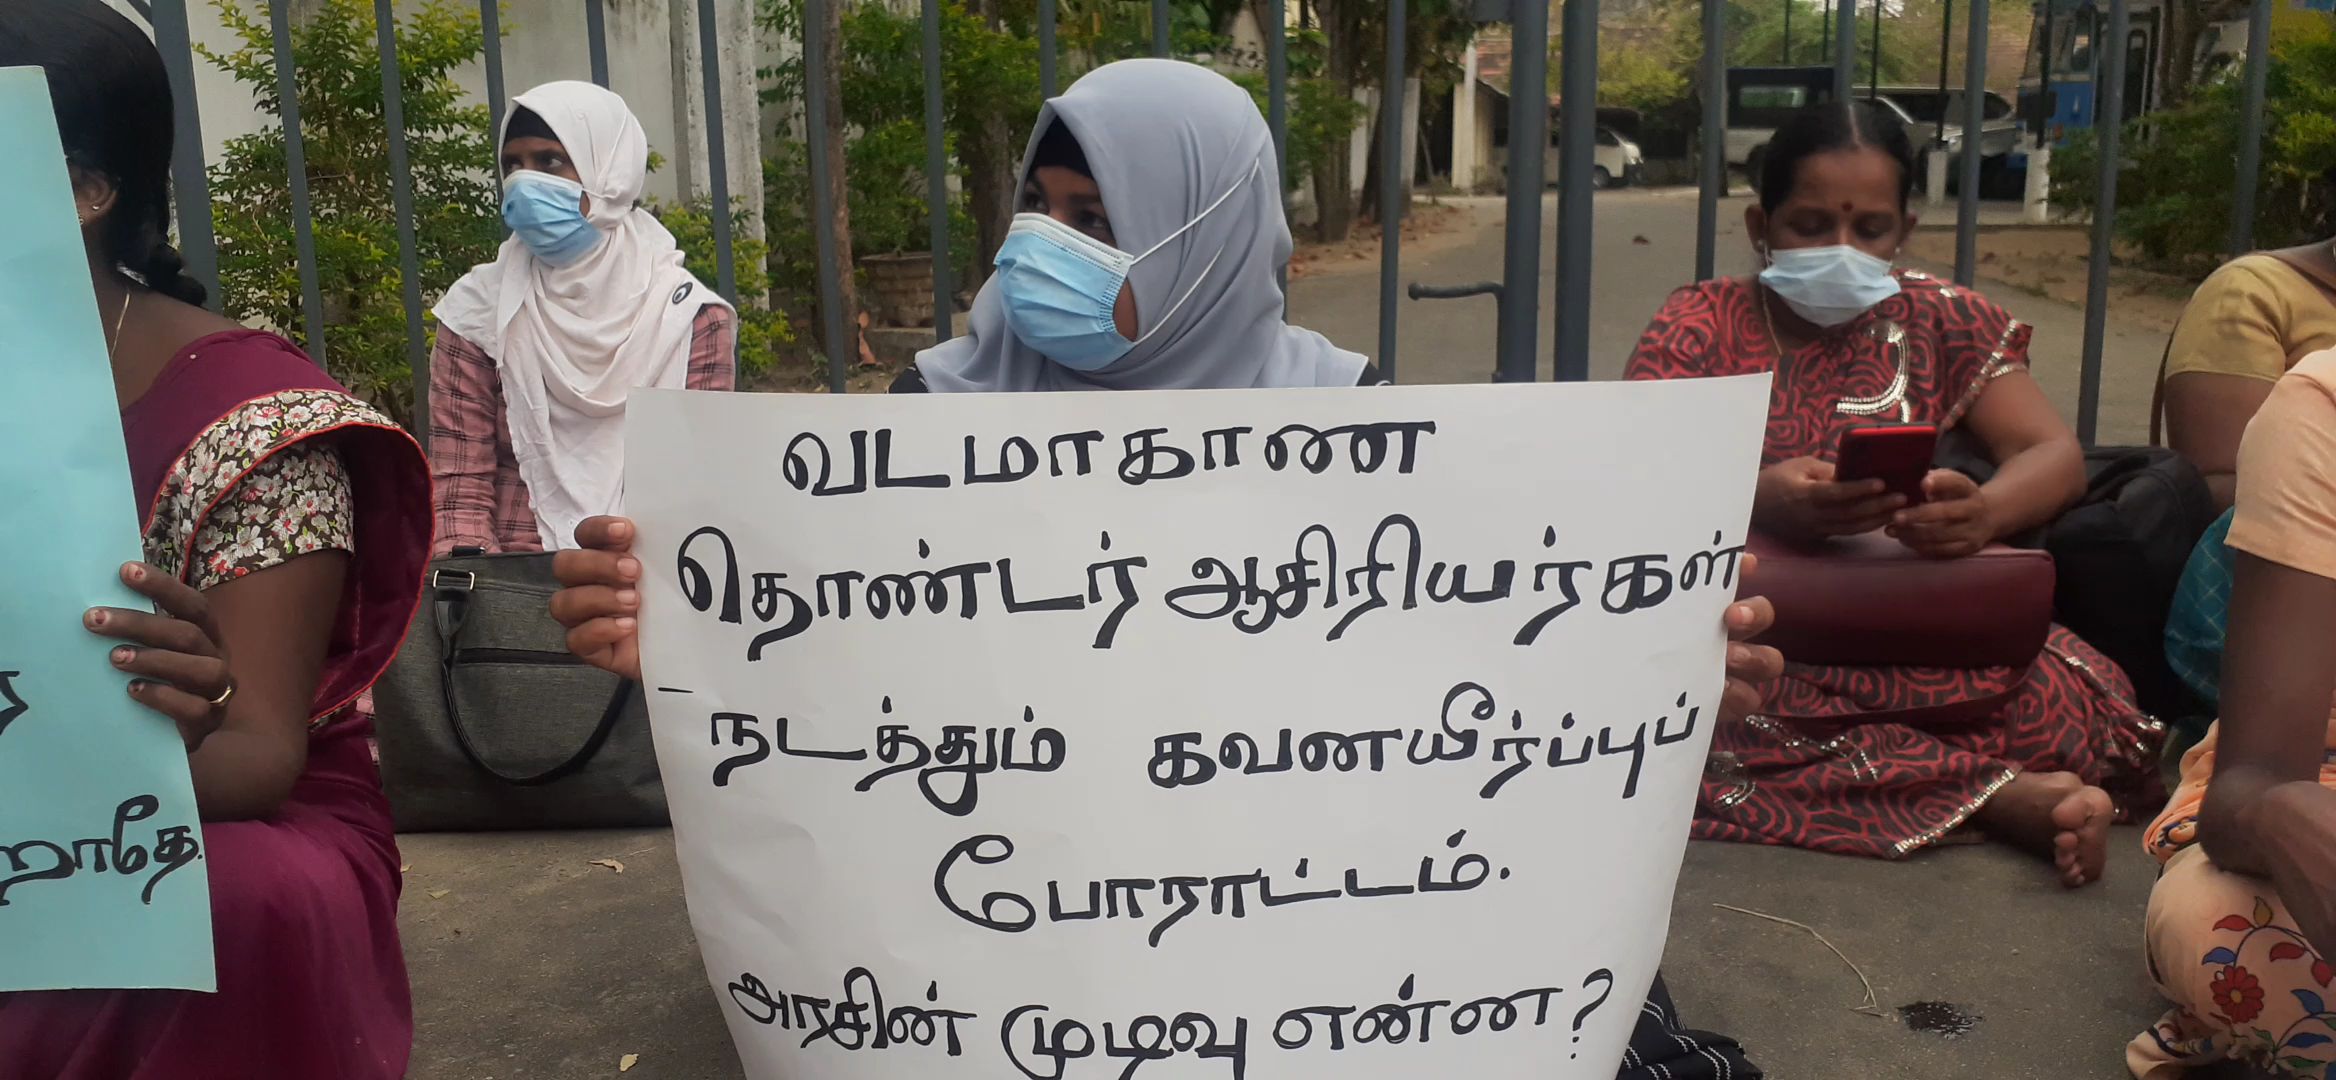 வடமாகாண
தொண்டர் ஆசிரியர்கள்
நடத்தும் கவனயீர்ப்புப்
போராட்டம்.
அரசின் முடிவு என்ன?